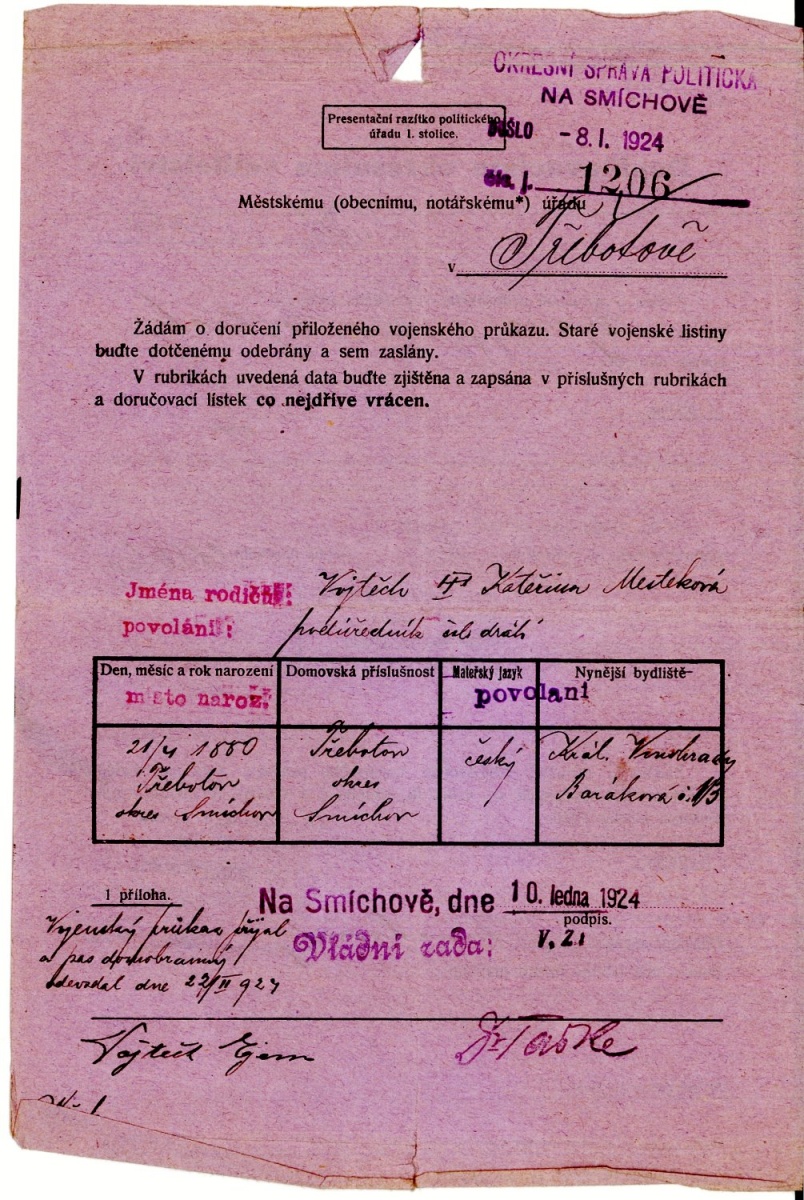 OKRESNÍ SPRÁVA POLITICKÁ
NA SMÍCHOVĚ
Presentační razítko politického
úřadu 1. stolice.
DOŠLO - 8. I. 1924
čís. j. 1206
Městskému (obecnímu, notářskému*) úřadu
v Třebotově
Žádám o doručení přiloženého vojenského průkazu. Staré vojenské listiny
buďte dotčenému odebrány a sem zaslány.
V rubrikách uvedená data buďte zjištěna a zapsána v příslušných rubrikách
a doručovací lístek co nejdříve vrácen.
Jména rodičů: Vojtěch Kateřina Mesteková
povolání: podúředník drah
Den, měsíc a rok narození
místo naroz.
Domovská příslušnost
Mateřský jazyk
Nynější bydliště
povolaní
21/4 1880
Třebotov
okres Smíchov
Třebotov
okres
Smíchov
český
Král. Vinohrady
Barákova č.
1 příloha.
Na Smíchově, dne 10. ledna 1924
podpis.
Vládní rada:
V. Z.
Vojenský průkaz přijal
a pas domobranný
odevzdal dne 22/II 1924
Vojtěch